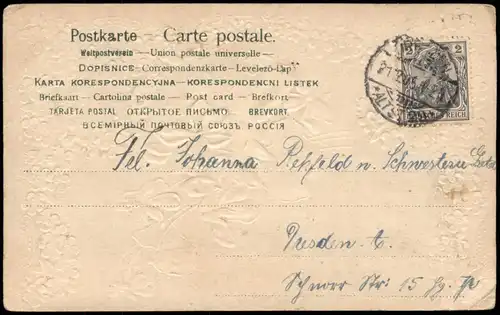 Postkarte - Carte postale.
Weltpostverein — Union postale universelle —
DOPISNICE - Correspondenzkarte - Levelező-Lap
KARTA KORESPONDENCYJNA — KORESPONDENCNI LISTEK
Briefkaart - Cartolina postale - Post card - Brefkort.
TARJETA POSTAL ОТКРЫТОЕ ПИСЬМО BREVKORT.
ВСЕМІРНЫЙ ПОЧТОВЫЙ СОЮЗЪ РОССІЯ
2
REICH
Frl. Johanna n. Schwestern
Dresden-A.
Schnorr Str: 15